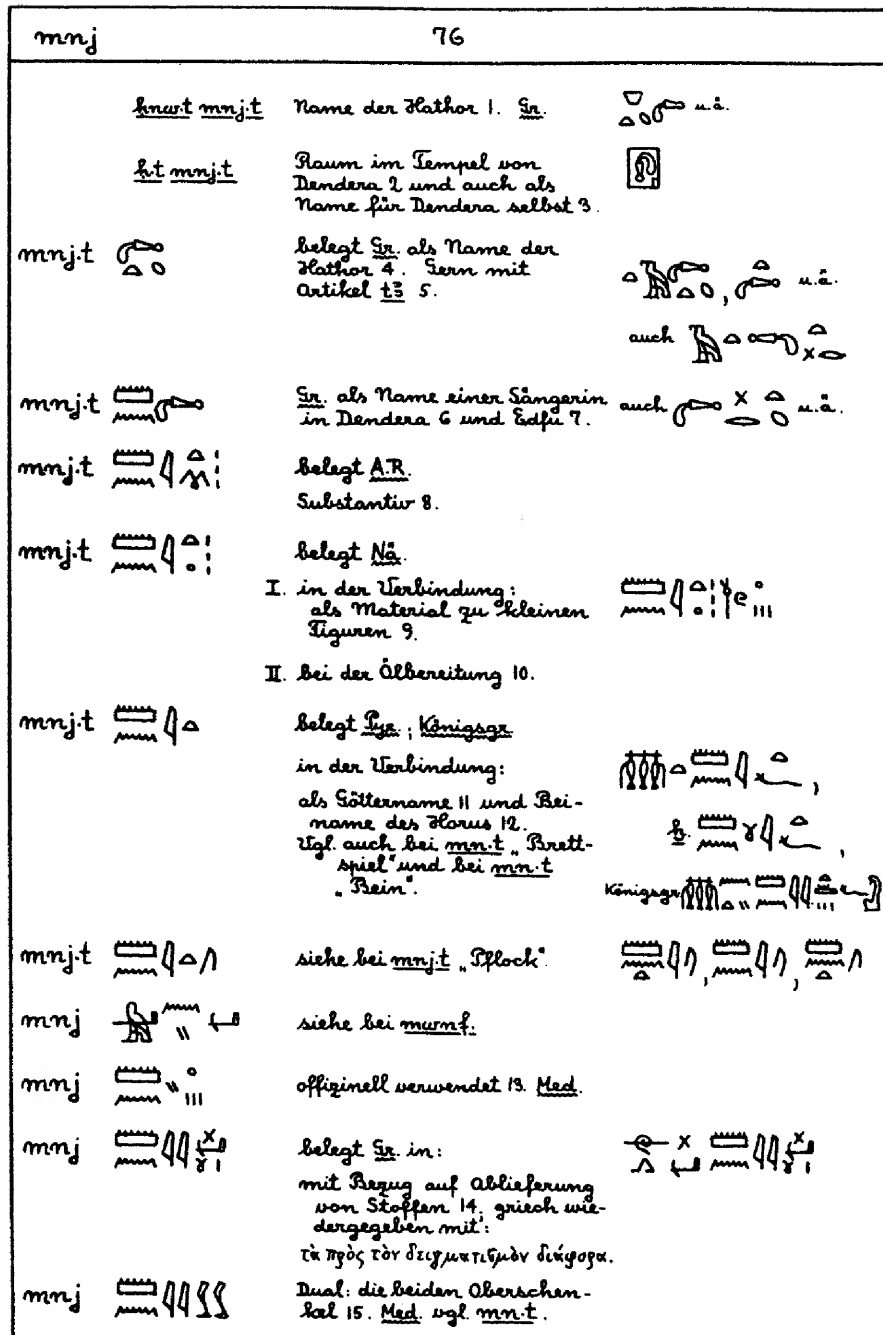 mnj 76
ḥnw.t mnj.t Name der Hathor 1. Gr. u.ä.
ḥ.t mnj.t Raum im Tempel von
Dendera 2 und auch als
Name für Dendera selbst 3.
mnj.t belegt Gr. als Name der
Hathor 4. Gern mit
Artikel tꜣ 5. , u.ä.
auch
mnj.t Gr. als Name einer Sängerin auch u.ä.
in Dendera 6 und Edfu 7.
mnj.t belegt A.R.
Substantiv 8.
mnj.t belegt Nä.
I. in der Verbindung:
als Material zu kleinen
Figuren 9.
II. bei der Ölbereitung 10.
mnj.t belegt Pyr.; Königsgr.
in der Verbindung: ,
als Göttername 11 und Bei-
name des Horus 12.
Vgl. auch bei mn.t „Brett-
spiel" und bei mn.t
„Bein". Königsgr.
mnj.t siehe bei mnj.t „Pflock". , ,
mnj siehe bei mwnf.
mnj offizinell verwendet 13. Med.
mnj belegt Gr. in:
mit Bezug auf Ablieferung
von Stoffen 14, griech wie-
dergegeben mit:
τὰ πρὸς τὸν δειγματισμὸν διάφορα.
mnj Dual: die beiden Oberschen-
kel 15. Med. vgl. mn.t.